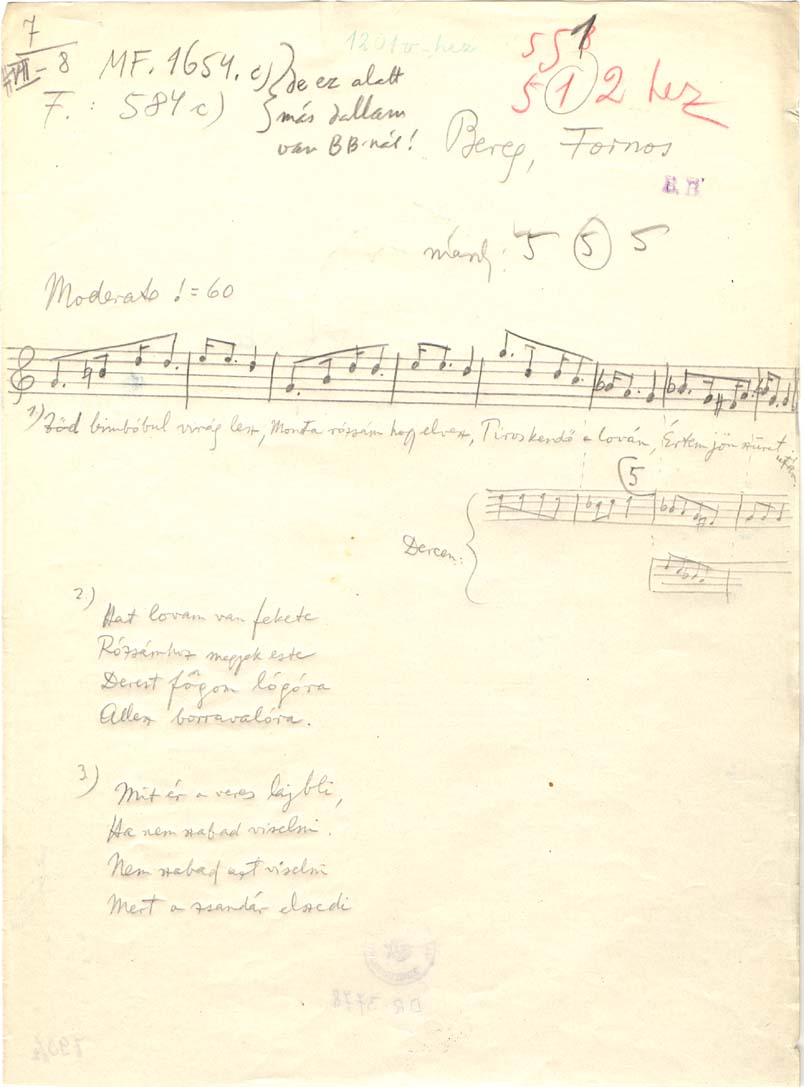 7
VII - 8
MF. 1654. c) de ez alatt
F. : 584 c) más dallam
van BB-nál!
1201v-hez
5 5 1
5 1 2 hez
Bereg, Fornos
B. B.
másh: 5 5 5
Moderato ♩ = 60
1) Zöd bimbóbul virág lesz, Monta rózsám hogy elvesz, Piros kendő a lován, Értem jön szüret után.
5
Dercen:
2.)
Hat lovam van fekete
Rózsámhoz megyek este
Derest fogom lógóra
Allesz borravalóra.
3.)
Mit ér a veres lajbli,
Ha nem szabad viselni.
Nem szabad azt viselni
Mert a zsandár elszedi